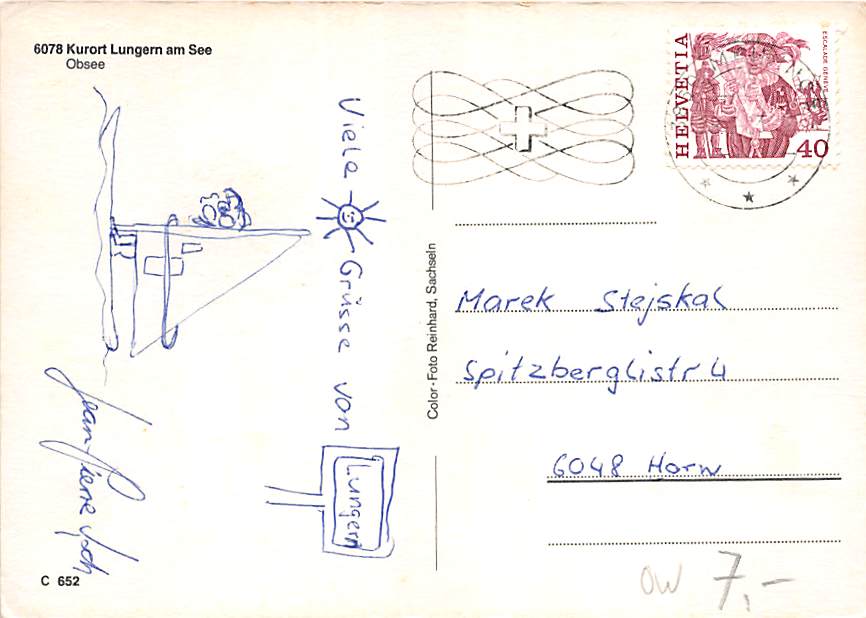 6078 Kurort Lungern am See
Obsee
Viele Grüsse von
Lungern
C 652
Color-Foto Reinhard, Sachseln
HELVETIA
ESCALADE GENÈVE
40
Marek Stejskal
Spitzberglistr 4
6048 Horw
OW 7,-